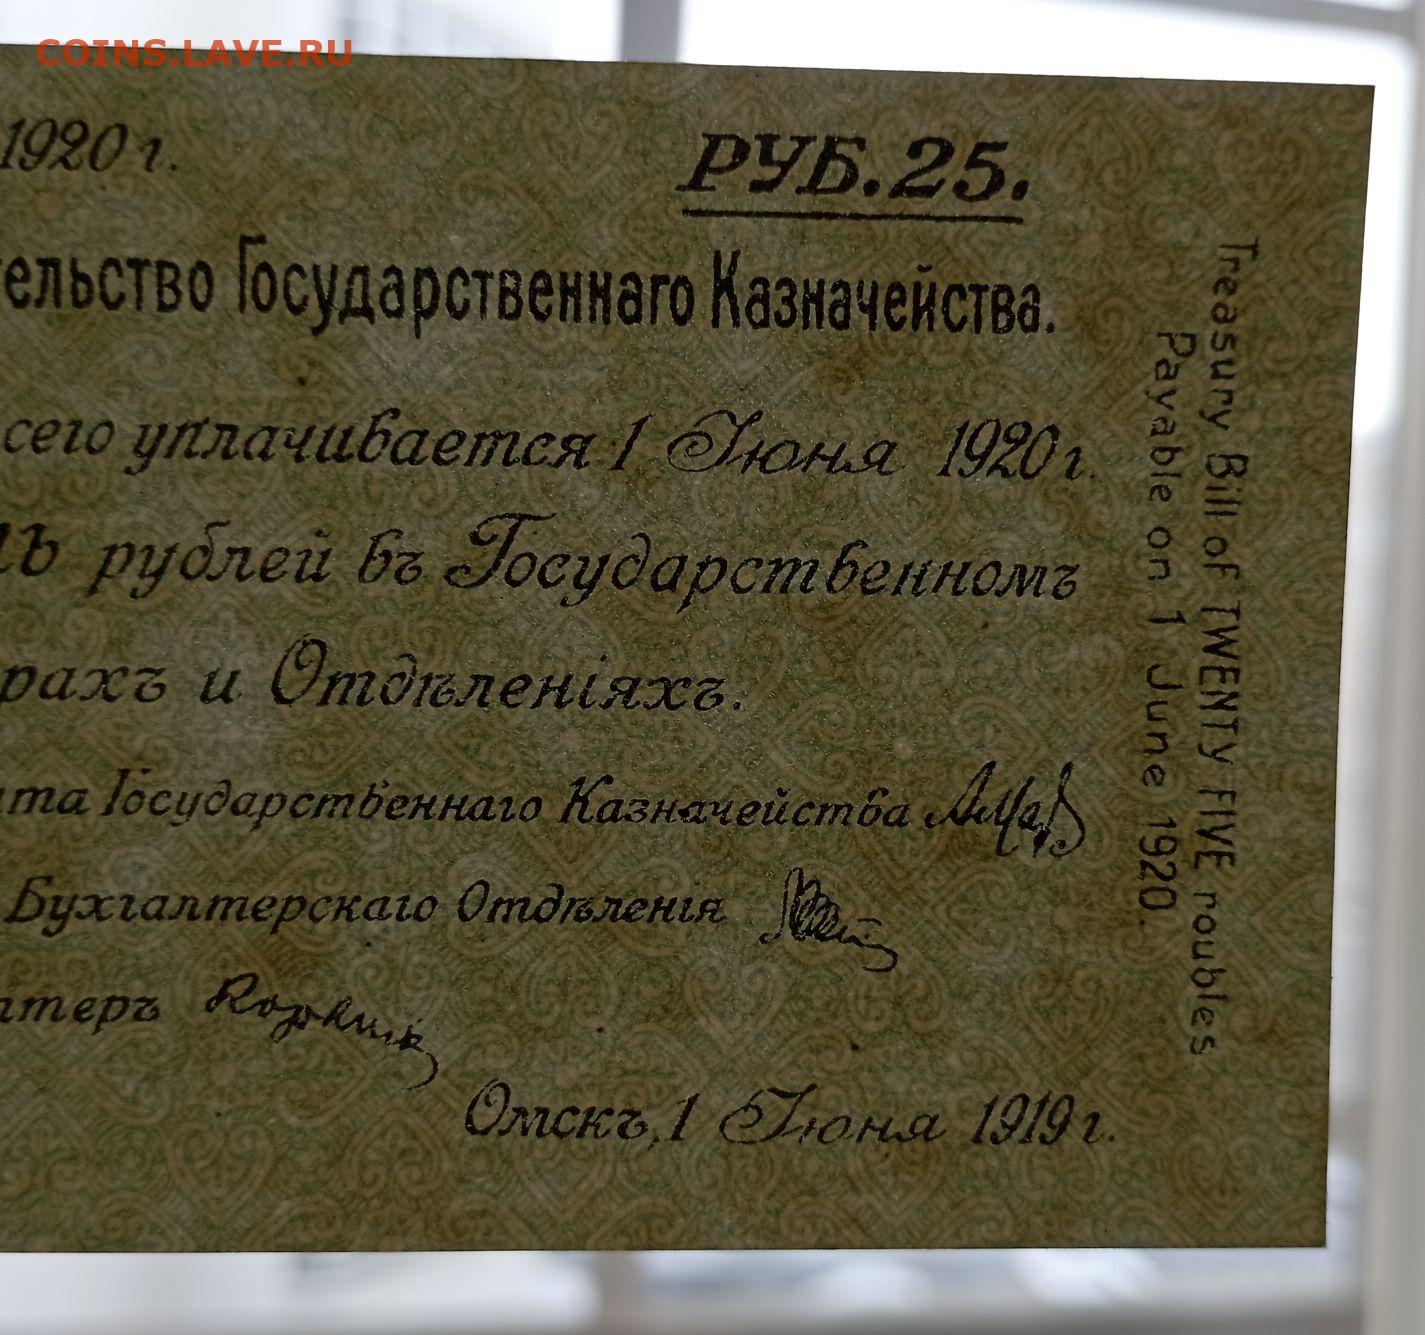 COINS.LAVE.RU
1920 г.
РУБ. 25.
ельство Государственнаго Казначейства.
сего уплачивается 1 Июня 1920 г.
рублей въ Государственномъ
рахъ и Отдѣленіяхъ.
та Государственнаго Казначейства
Бухгалтерскаго Отдѣленія
лтеръ
Омскъ, 1 Июня 1919 г.
Treasury Bill of TWENTY FIVE roubles
Payable on 1 June 1920.